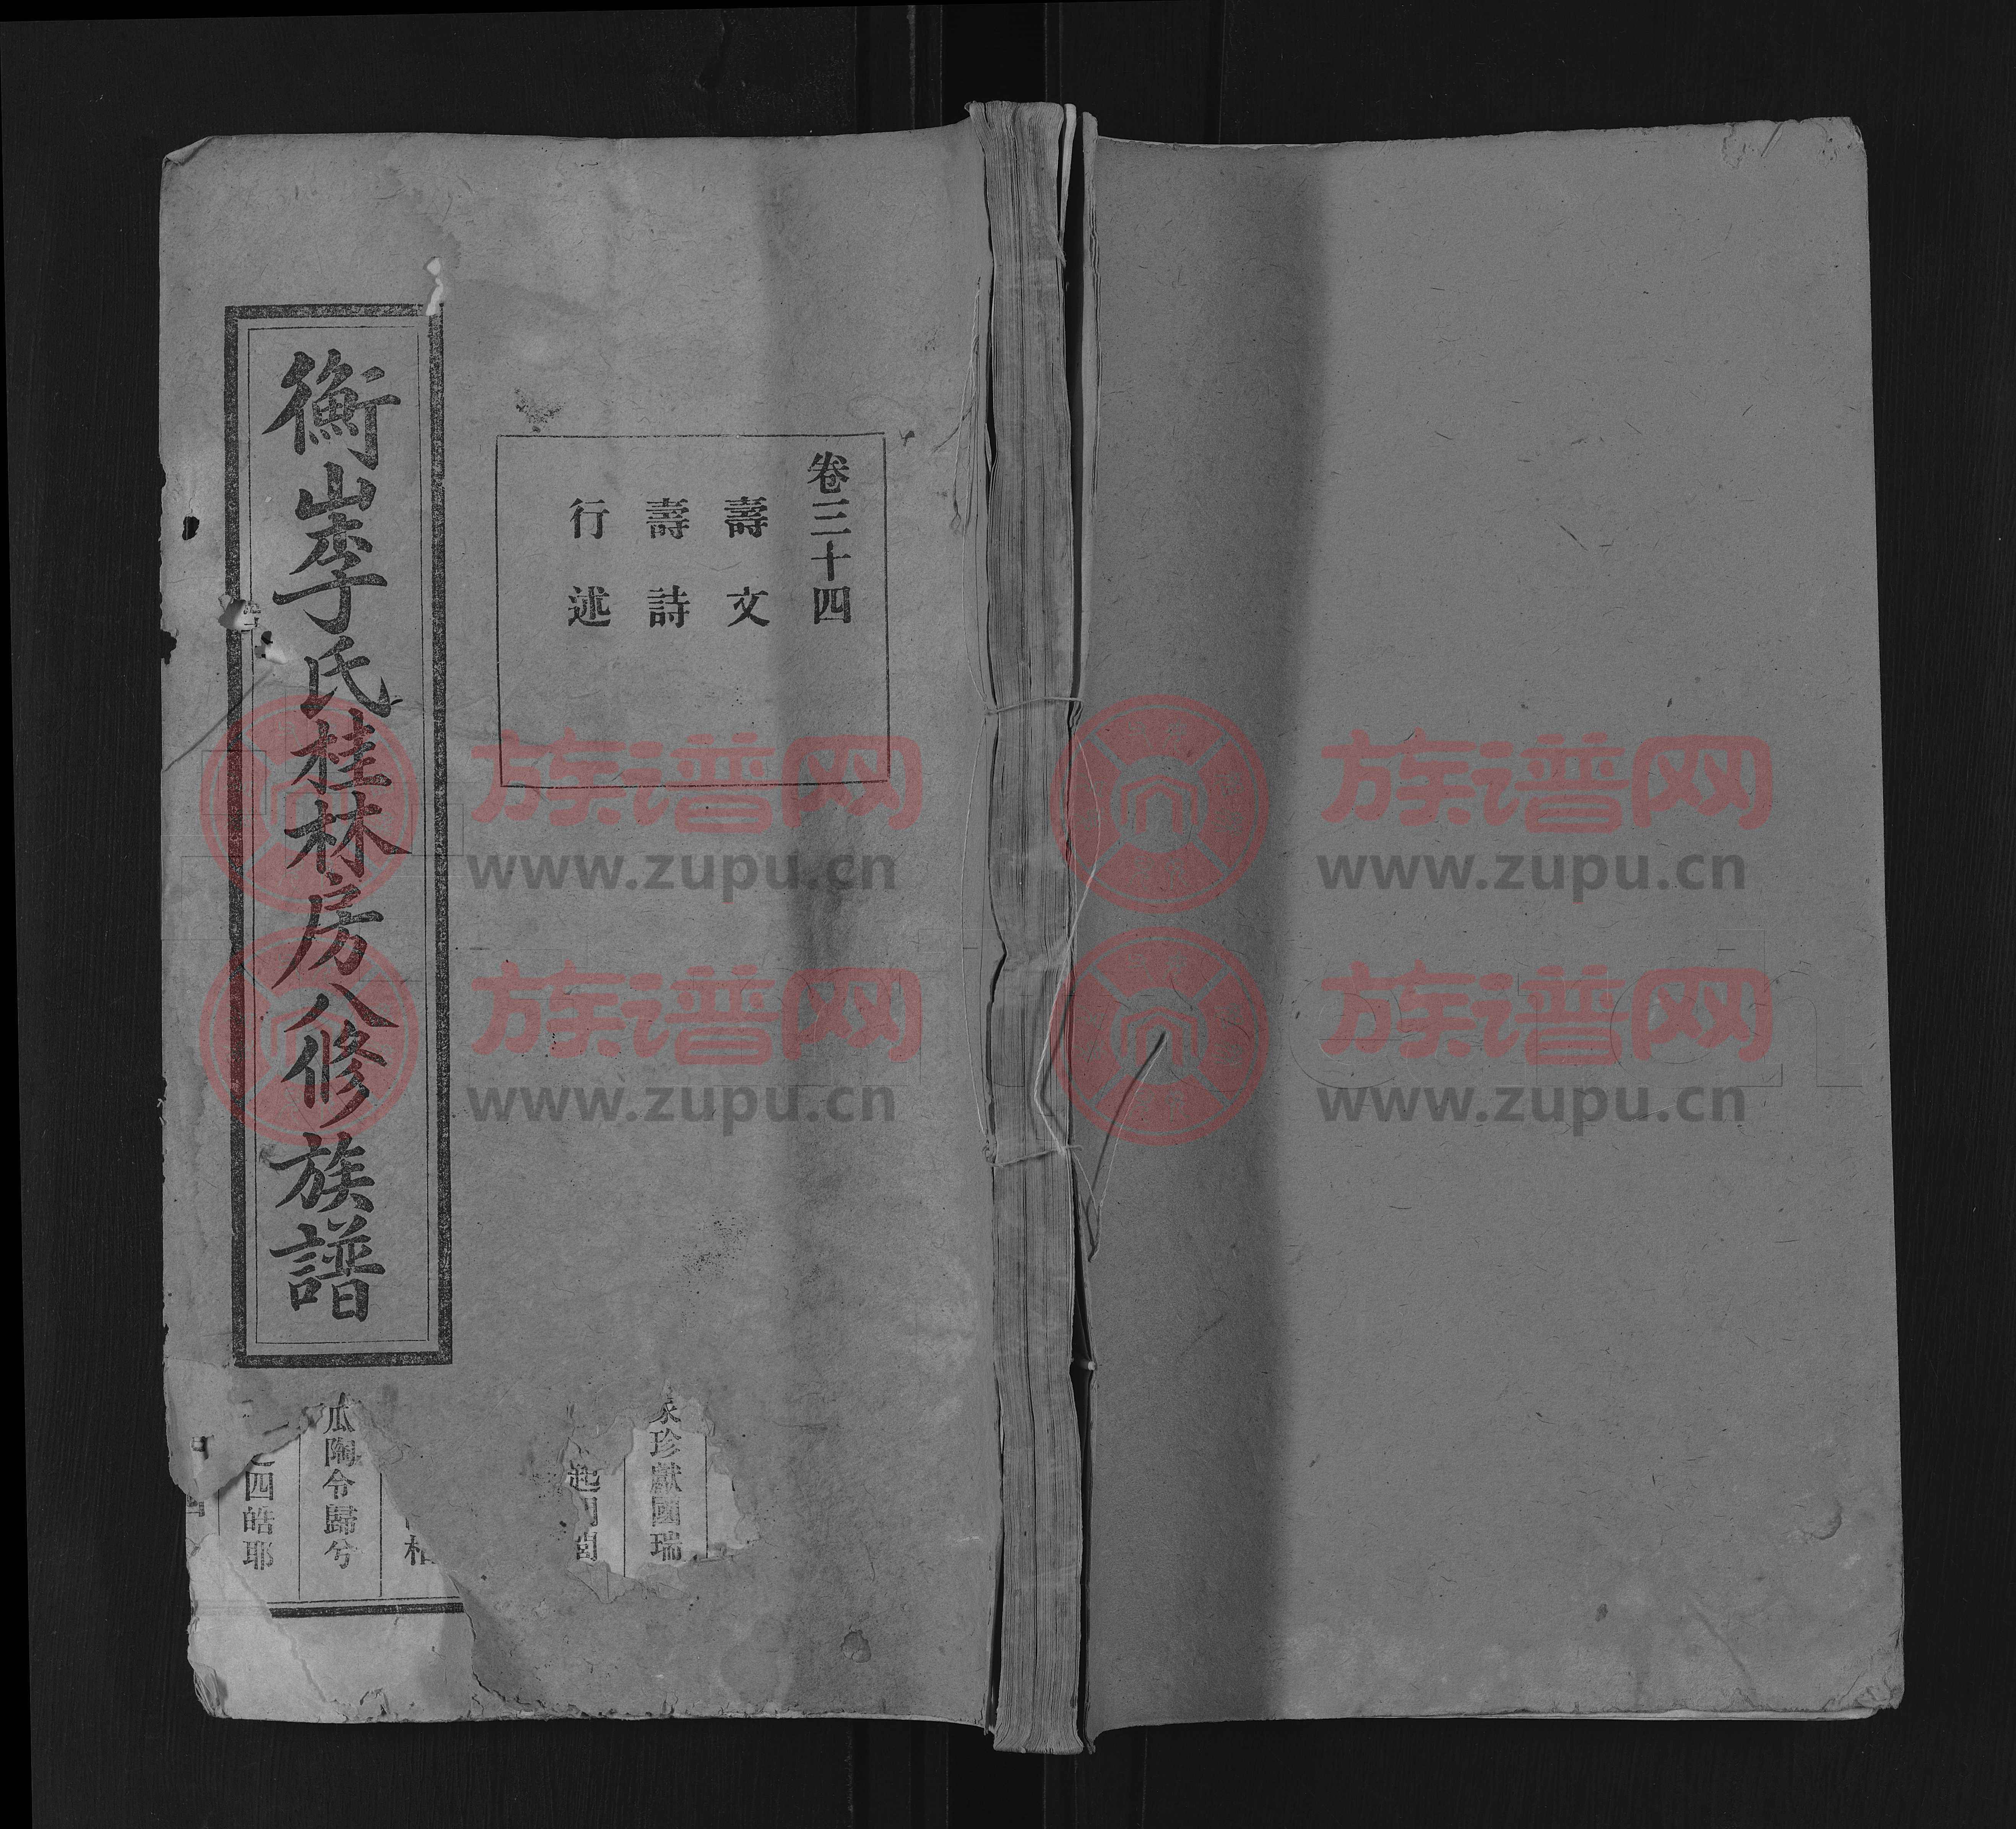 衡山李氏桂林房八修族譜
卷三十四
壽文
壽詩
行述
珍獻國瑞
瓜陶令歸兮
四皓耶
族谱网
www.zupu.cn
族谱网
www.zupu.cn
族谱网
www.zupu.cn
族谱网
www.zupu.cn